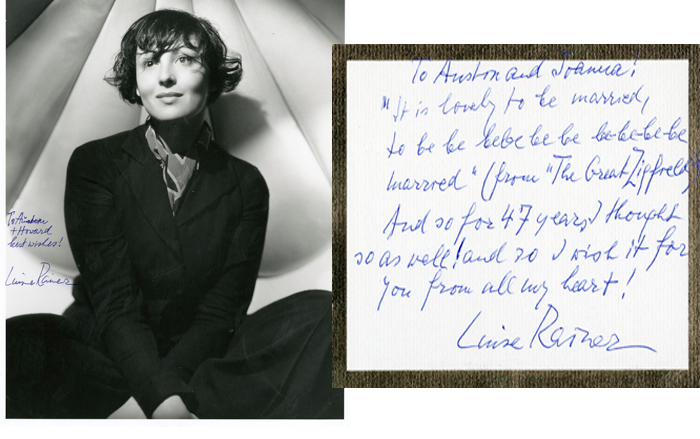 To
+ Howard
best wishes!
Luise Rainer
To Auston and Joanna!
"It is lovely to be married,
to be be bebe be be be-be-be-be
married" (from "The Great Zigfield)
And so for 47 years, I thought
so as well! and so I wish it for
you from all my heart!
Luise Rainer